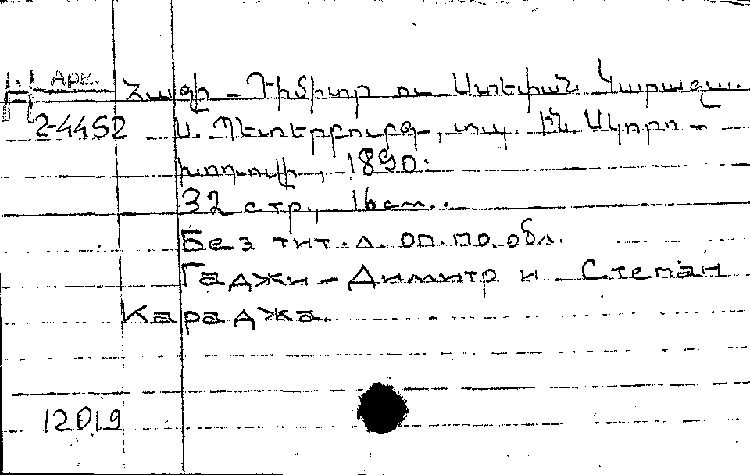 Арк. Հաջի - Դիմիտր ու Ստեփան Կարաջա.
2-4452 Ս. Պետերբուրգ, տպ. Ին. Սկորո-
խոդովի, 1890:
32 стр., 16 см.
Без тит. л. оп. по. обл.
Гаджи - Димитр и Степан
Караджа.
12019